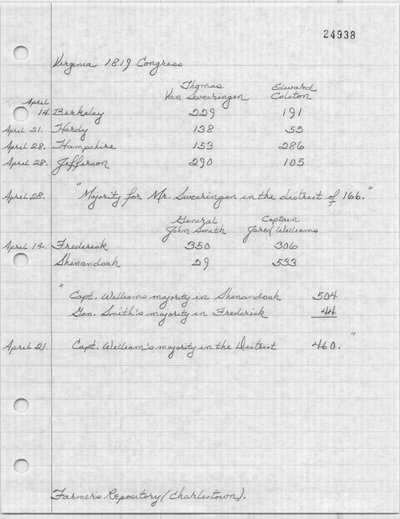 24938
Virginia 1819 Congress
Thomas Van Swearingen Edward Colston
April 14. Berkeley 229 191
April 21. Hardy 138 55
April 28. Hampshire 153 286
April 28. Jefferson 290 105
April 28. "Majority for Mr. Swearingen in the district of 166."
General John Smith Captain Jared Williams
April 14. Frederick 350 306
Shenandoah 29 533
"Capt. Williams majority in Shenandoah 504
Gen. Smith's majority in Frederick 44
April 21. Capt. William's majority in the District 460."
Farmers Repository (Charlestown).